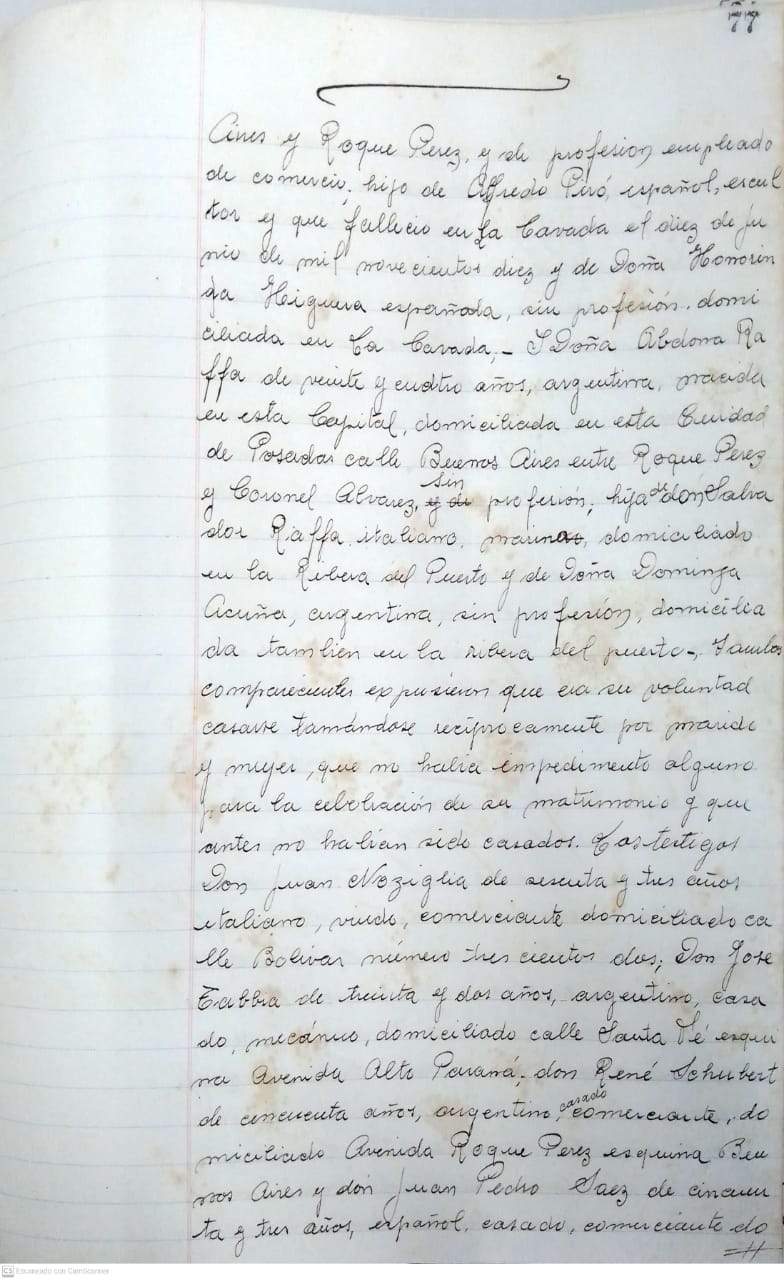 77
Aires y Roque Perez, y de profesion empleado
de comercio; hijo de Alfredo Piró, español, escul
tor y que fallecio en La Cavada el diez de ju
nio de mil novecientos diez y de Doña Honorin
da Higuera española, sin profesión. domi
ciliada en La Cavada,- Y Doña Abdona Ra
ffa de veinte y cuatro años, argentina, nacida
en esta Capital, domiciliada en esta Ciudad
de Posadas calle Buenos Aires entre Roque Perez
y Coronel Alvarez, y de sin profesión; hija de don Salva
dor Raffa italiano, marino, domiciliado
en la Ribera del Puerto y de Doña Dominga
Acuña, argentina, sin profesión, domicilia
da tambien en la ribera del puerto-,
comparecientes expusieron que era su voluntad
casarse tomándose recíprocamente por marido
y mujer, que no habia impedimento alguno
para la celebración de su matrimonio y que
antes no habían sido casados. Los testigos
Don Juan Noziglia de sesenta y tres años
italiano, viudo, comerciante domiciliado ca
lle Bolivar número trescientos dos; Don José
Tabbia de treinta y dos años, argentino, casa
do, mecánico, domiciliado calle Santa Fé esqui
na Avenida Alto Paraná; don René Schubert
de cincuenta años, argentino, casado comerciante, do
miciliado Avenida Roque Perez esquina Bue
nos Aires y don Juan Pedro Saez de cincuen
ta y tres años, español, casado, comerciante do
CS Escaneado con CamScanner